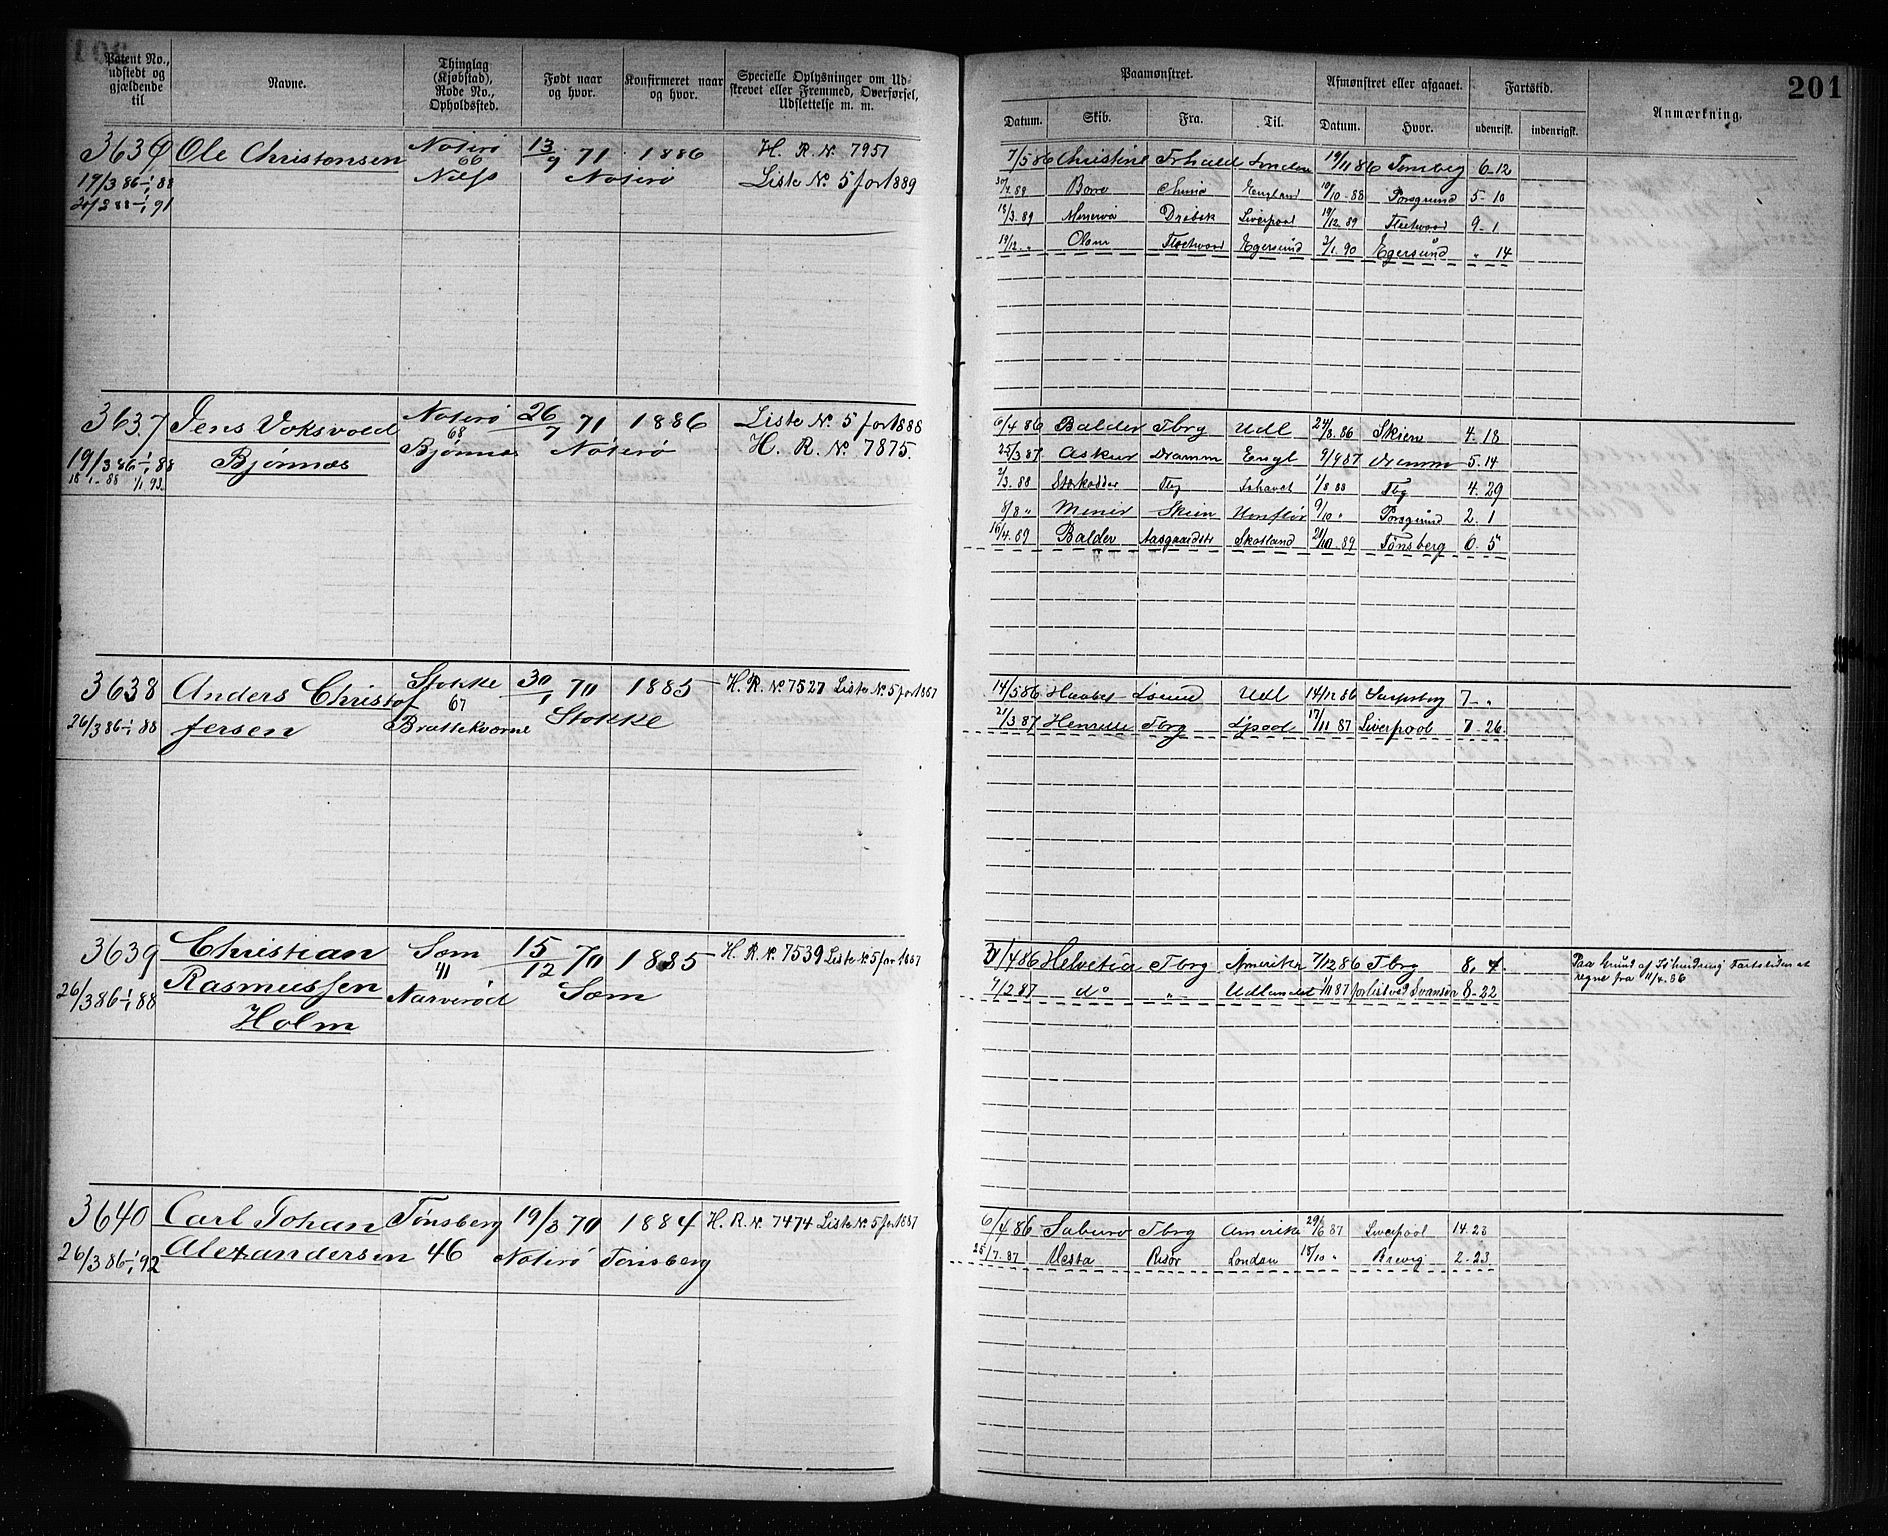 201
Patent No., udstedt og gjældende til
Navne.
Thinglag (Kjøbstad), Rode No., Opholdssted.
Født naar og hvor.
Konfirmeret naar og hvor.
Specielle Oplysninger om Udskrevet eller Fremmed, Overførsel, Udslettelse m. m.
Paamønstret.
Afmønstret eller afgaaet.
Fartstid.
Anmærkning.
Datum. Skib. Fra. Til. Datum. Hvor. udenrigsk. indenrigsk.
3636 Ole Christensen Nøterø 13/9 71 1886 H. R. No 7951
19/3 86 - 1/1 88 66 Nøterø Liste No 5 for 1889
20/2 88 - 1/1 91
7/5 86 Christine Frhald London 19/11 86 Tønsberg 6-12
89 England 10/10-88 Porsgrund 5-10
18/3.89 Minerva Drøbak Liverpool 19/12.89 Fleetwood 9-1
19/12 „ Fleetwood Egersund 2/1.90 Egersund „ 14
3637 Jens Voksvold Nøterø 26/7 71 1886 Liste No 5 for 1888
19/3 86 - 1/1 88 Bjønnæs 68 Bjønnæs Nøterø H. R. No. 7875.
18/1-88 1/1 93
6/4 86 Balder Tbrg Udl 24/8.86 Skien 4.18
25/3 87 Askur Dramm Engl 9/9 87 Dramm 5.14
2/3.88 Tbg 1/8 88 Tbg 4.29
8/8 „ Skien Honflør 9/10 „ Porsgrund 2.1
16/4.89 Balder Aasgaardstr Skotland 21/10.89 Tønsberg 6.5
3638 Anders Christof Stokke 30/1 70 1885 H. R. No 7527 Liste No 5 for 1887
26/3 86 - 1/1 88 fersen 67 Brattekværne Stokke
14/5 86 Haabet Udl 14/12 86 Sarpsborg 7- „
21/3.87 Henriette Tbrg Lpool 17/11 87 Liverpool 7-26
3639 Christian Sæm 15/12 70 1885 H. R. No 7539 Liste No 5 for 1887
26/3 86 - 1/1 88 Rasmussen 41 Narverød Sæm
Holm
/4 86 Helvetia Tbrg Amerika 7/12 86 Tbrg 8. 4 Paa Grund af Fartstiden at
7/2 87 do „ Udlandet 1/11 87 forlist ved Svansea 8-22 regne fra 11/4.86
3640 Carl Johan Tønsberg 19/3 70 1884 H. R. No. 7474 Liste No 5 for 1887
26/3 86 - 1/1 92 Alexandersen 46 Nøterø Tønsberg
6/4 86 Tbrg Amerika 29/6 87 Liverpool 14.23
25/7.87 Vesta Risør London 18/10 „ Brevig 2-23